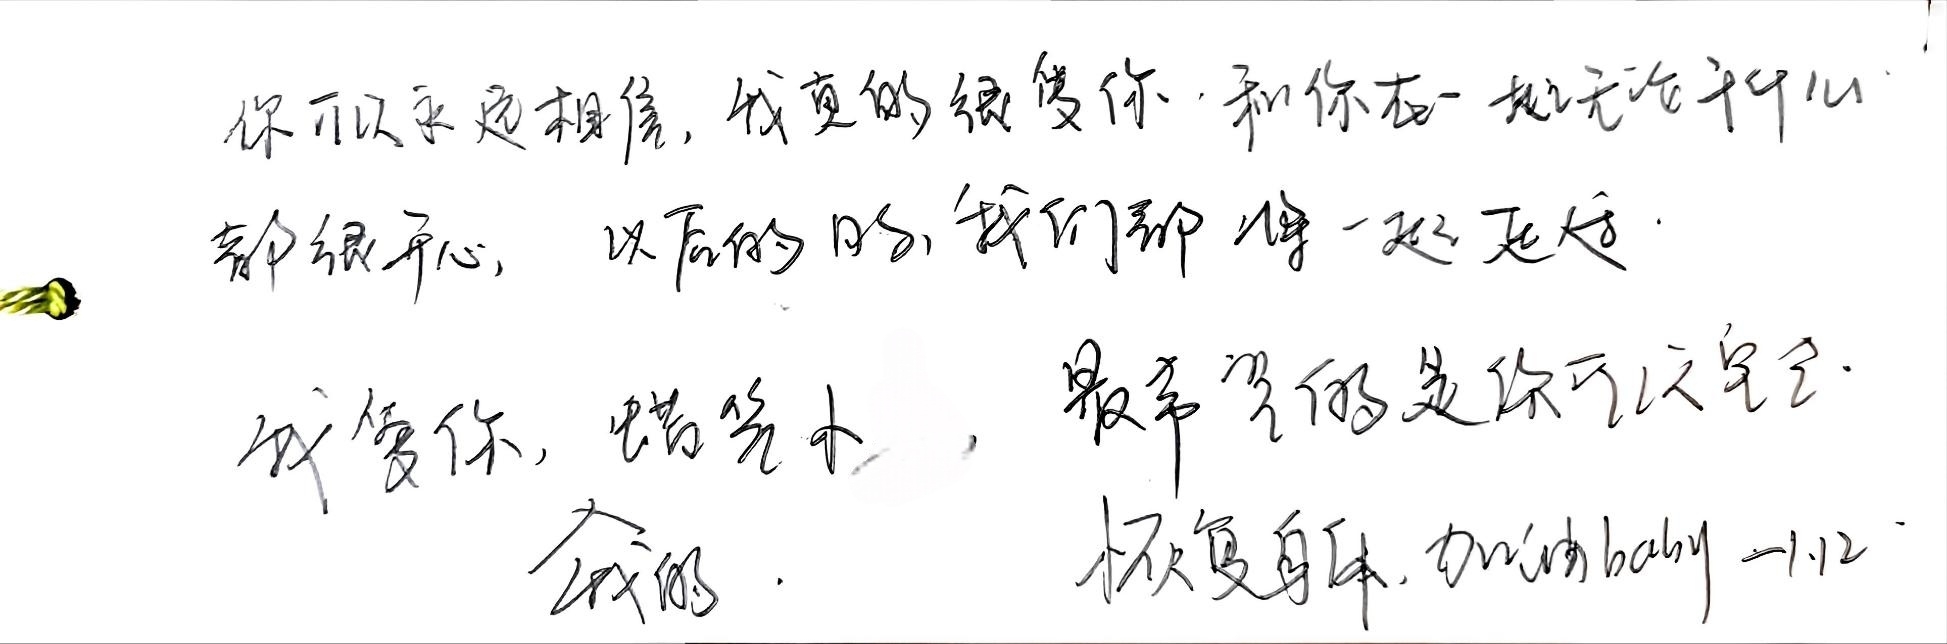 你可以永远相信，我真的很爱你．和你在一起无论干什么
都很开心，以后的日子，我们都将一起走过．
我爱你，蜡笔小，
我的．
最希望的是你可以完全．
恢复身体，加油baby —1.12